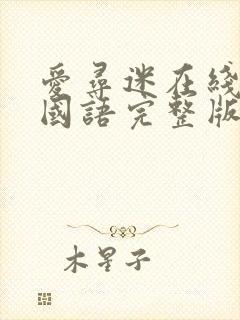 愛尋迷在綫
國語完整版
木星子